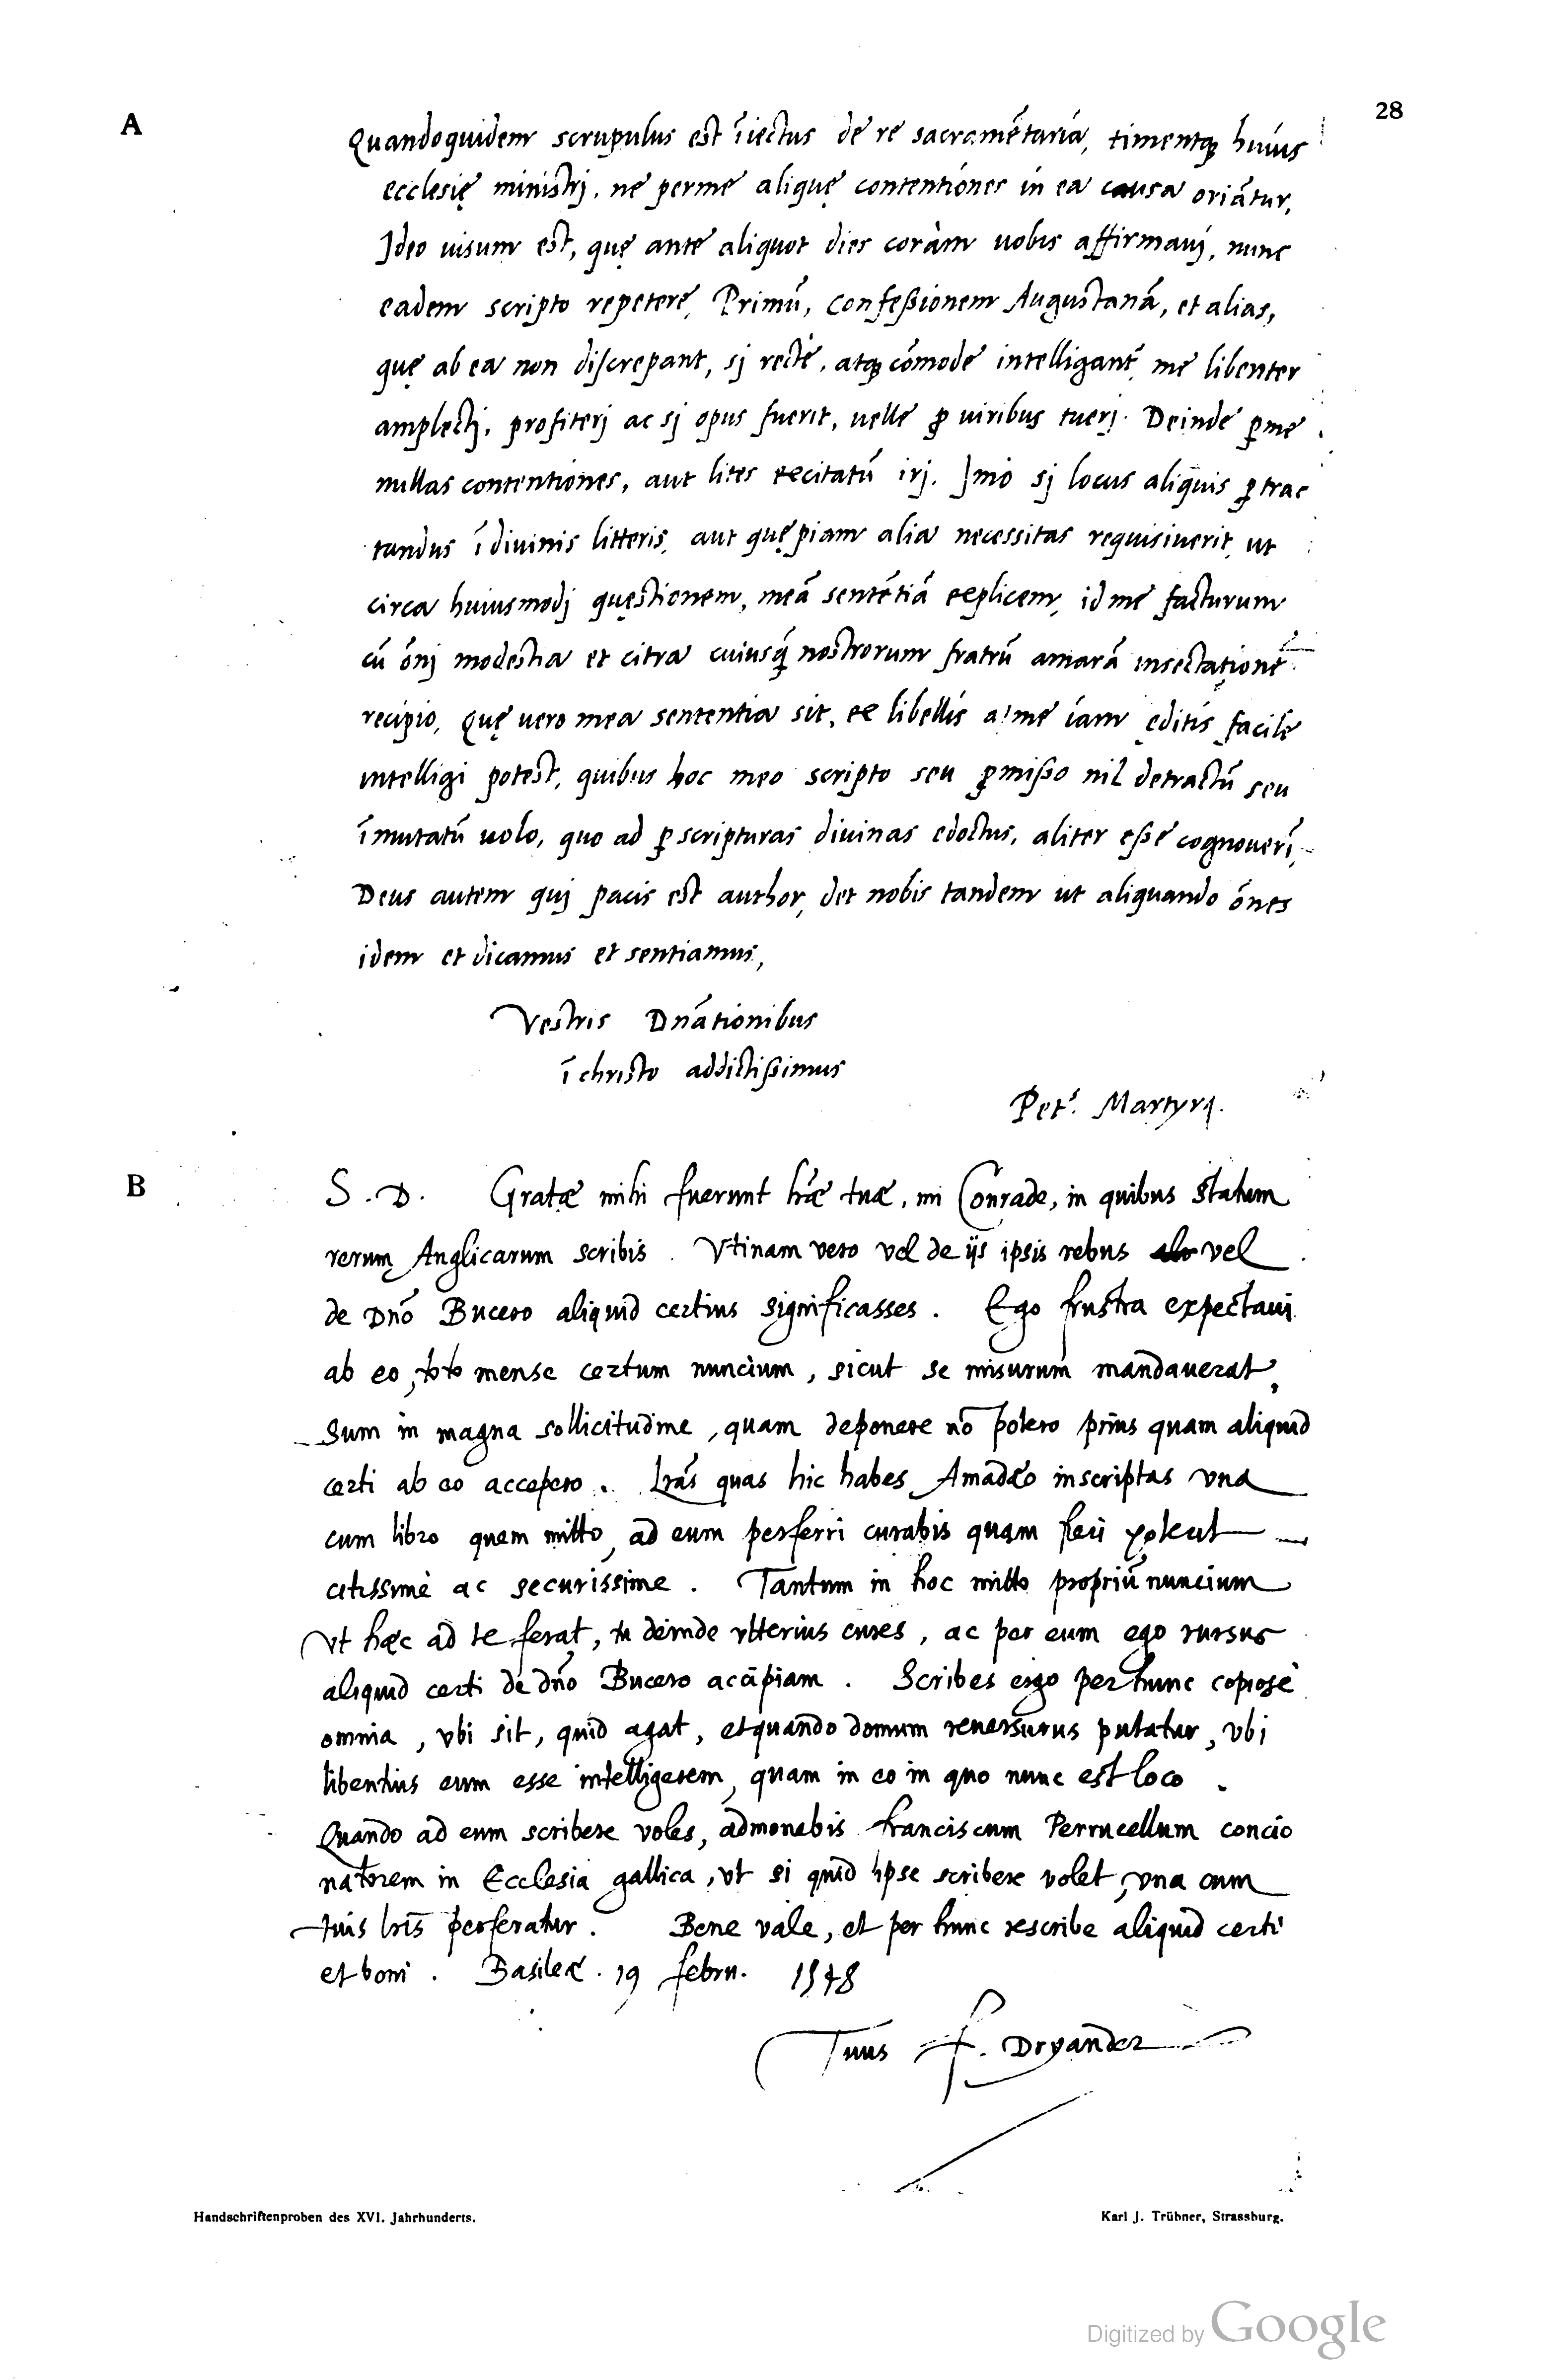 28
A
Quandoquidem scrupulus est īiectus de re sacramētaria, timentq huius
ecclesię ministrj, ne perme aliquę contentiones in ea causa oriātur,
Ideo uisum est, quę ante aliquot dies coràm uobis affirmauj, nunc
eadem scripto repetere, Primū, Confeßionem Augustanā, et alias,
quę ab ea non discrepant, sj rectè, atq cōmode intelligant̄, me libenter
amplectj, profiterj ac sj opus fuerit, uelle p uiribus tuerj. Deinde pme
nullas contentiones, aut lites excitatū irj. Imo sj locus aliquis ptrac
tandus ī diuinis litteris, aut quępiam alia necessitas requisiuerit, ut
circa huiusmodj quęstionem, meā sentētiā explicem, id me facturum
cū ōnj modestia et citra cuiusq̄ nostrorum fratrū amarā insectationē
recipio, Quę uero mea sententia sit, ex libellis a me iam ęditis facile
intelligi potest, quibus hoc meo scripto seu pmißo nil detractū seu
īmutatū uolo, quo ad p scripturas diuinas edoctus, aliter eße cognouerī,
Deus autem quj pacis est author, det nobis tandem ut aliquando ōnes
idem et dicamus et sentiamus,
Vestris Dnātionibus
ī christo addictißimus
Pets. Martyr
B
S. D. Gratæ mihi fuerunt lræ tuæ, mi Conrade, in quibus statum
rerum Anglicarum scribis. Vtinam vero vel de ijs ipsis rebus vel
de Dnō Bucero aliquid certius significasses. Ego frustra expectaui
ab eo, toto mense certum nuncium, sicut se misurum mandauerat,
Sum in magna sollicitudine, quam deponere nō potero prius quam aliquid
certi ab eo accepero. Lrās quas hic habes Amadæo inscriptas vna
cum libro quem mitto, ad eum perferri curabis quam fieri poterit
citissimè ac securissime. Tantum in hoc mitto propriū nuncium
vt hæc ad te ferat, tu deinde vlterius cures, ac per eum ego rursus
aliquid certi de dnō Bucero accipiam. Scribes ergo per hunc copiosè
omnia, vbi sit, quid agat, et quando domum reuersurus putatur, vbi
libentius eum esse intelligerem, quam in eo in quo nunc est loco.
Quando ad eum scribere voles, admonebis franciscum Perrucellum concio
natorem in Ecclesia gallica, vt si quid ipse scribere volet, vna cum
tuis lris̄ perferatur. Bene vale, et per hunc rescribe aliquid certi
et boni. Basileæ. 19 febru. 1548
Tuus f. Dryander
Handschriftenproben des XVI. Jahrhunderts.
Karl J. Trübner, Strassburg.
Digitized by Google